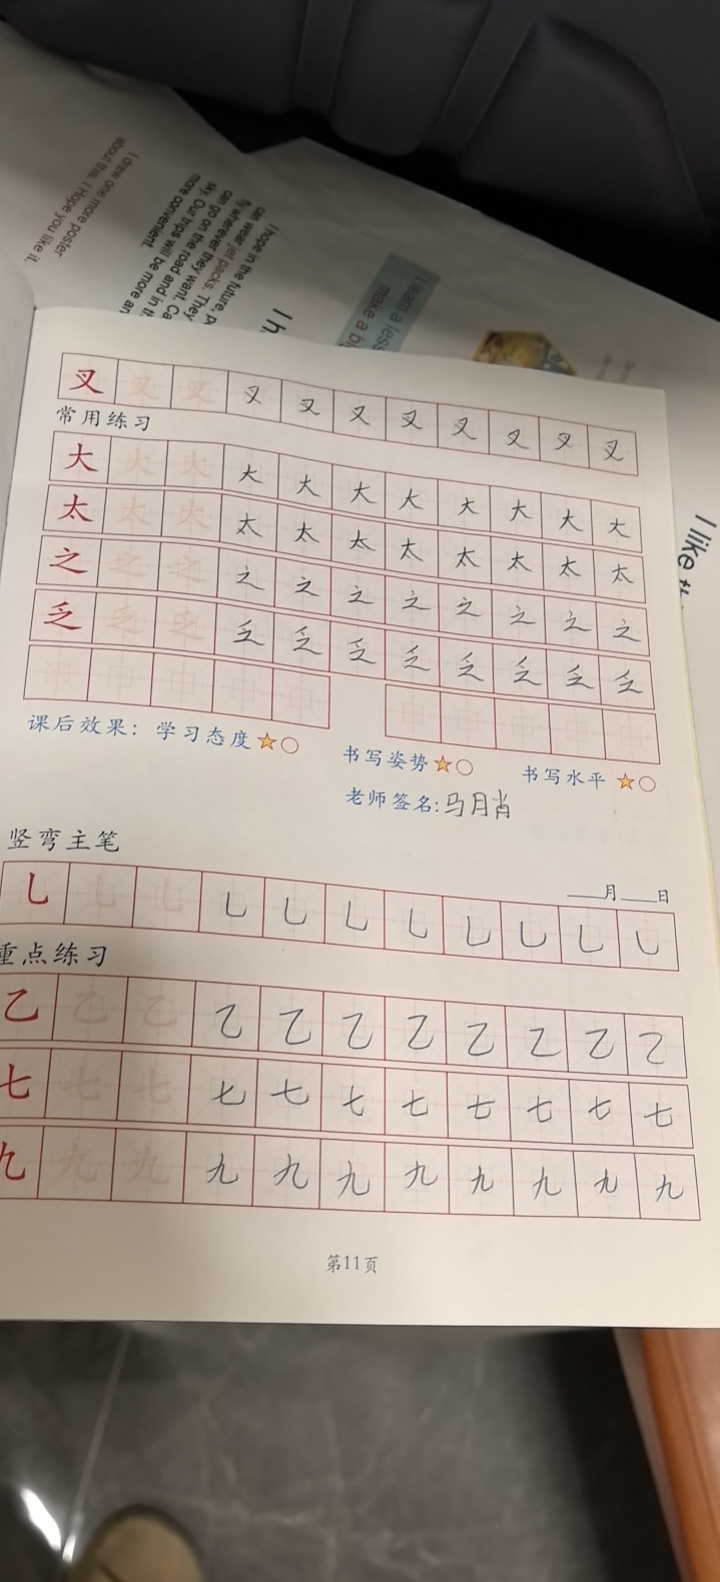 I drew one more poster
about this. I Hope you like it.
I hope in the future, p
can wear jet packs. They
fly wherever they want. Ca
can go on the road and in th
sky. Our trips will be more an
more convenient.
I h
I learn a less
make a b
I like
叉 叉 叉 叉 叉 叉 叉 叉 叉 叉 叉
常用练习
大 大 大 大 大 大 大 大 大 大 大
太 太 太 太 太 太 太 太 太 太 太
之 之 之 之 之 之 之 之 之 之 之
乏 乏 乏 乏 乏 乏 乏 乏 乏 乏 乏
课后效果: 学习态度 书写姿势 书写水平
老师签名:马月肖
竖弯主笔
月 日
乚 乚 乚 乚 乚 乚 乚 乚 乚 乚 乚
重点练习
乙 乙 乙 乙 乙 乙 乙 乙 乙 乙 乙
七 七 七 七 七 七 七 七 七 七 七
九 九 九 九 九 九 九 九 九 九 九
第11页